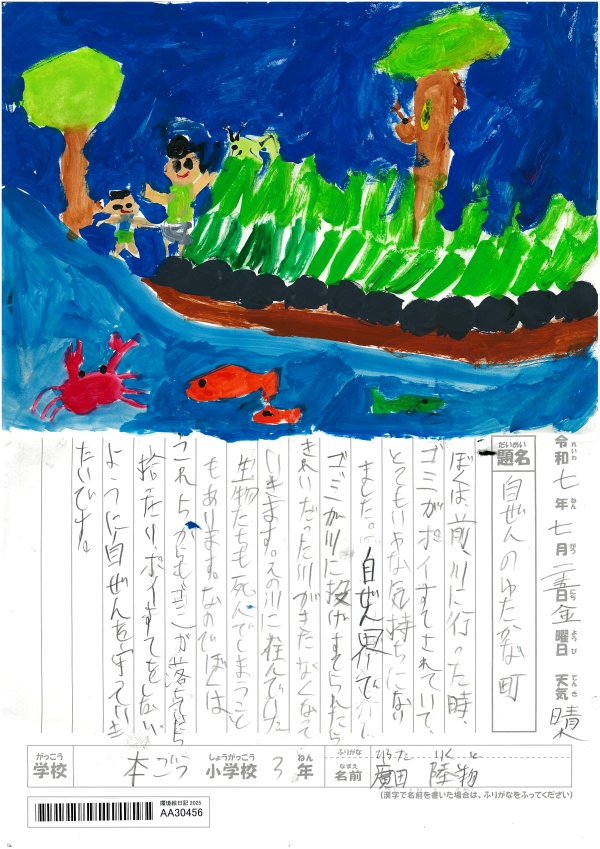 令和七年七月二十五日金曜日 天気 晴れ
題名 自ぜんのゆたかな町
ぼくは、前、川に行った時、
ゴミがポイすてされていて、
とてもいやな気持ちになり
ました。自ぜん界で
ゴミが川に投げすてられたら
きれいだった川がきたなくなって
いきます。その川に住んでいた
生物たちも死んでしまうこと
もあります。なのでぼくは、
これからもゴミが落ちてたら
拾ったり、ポイすてをしない
ように自ぜんを守っていき
たいです。
がっこう 学校 本ごう 小学校 しょうがっこう 3年 ねん
ふりがな ひろた りくと
なまえ 名前 廣田 陸
(漢字で名前を書いた場合は、ふりがなをふってください)
環境絵日記 2025
AA30456